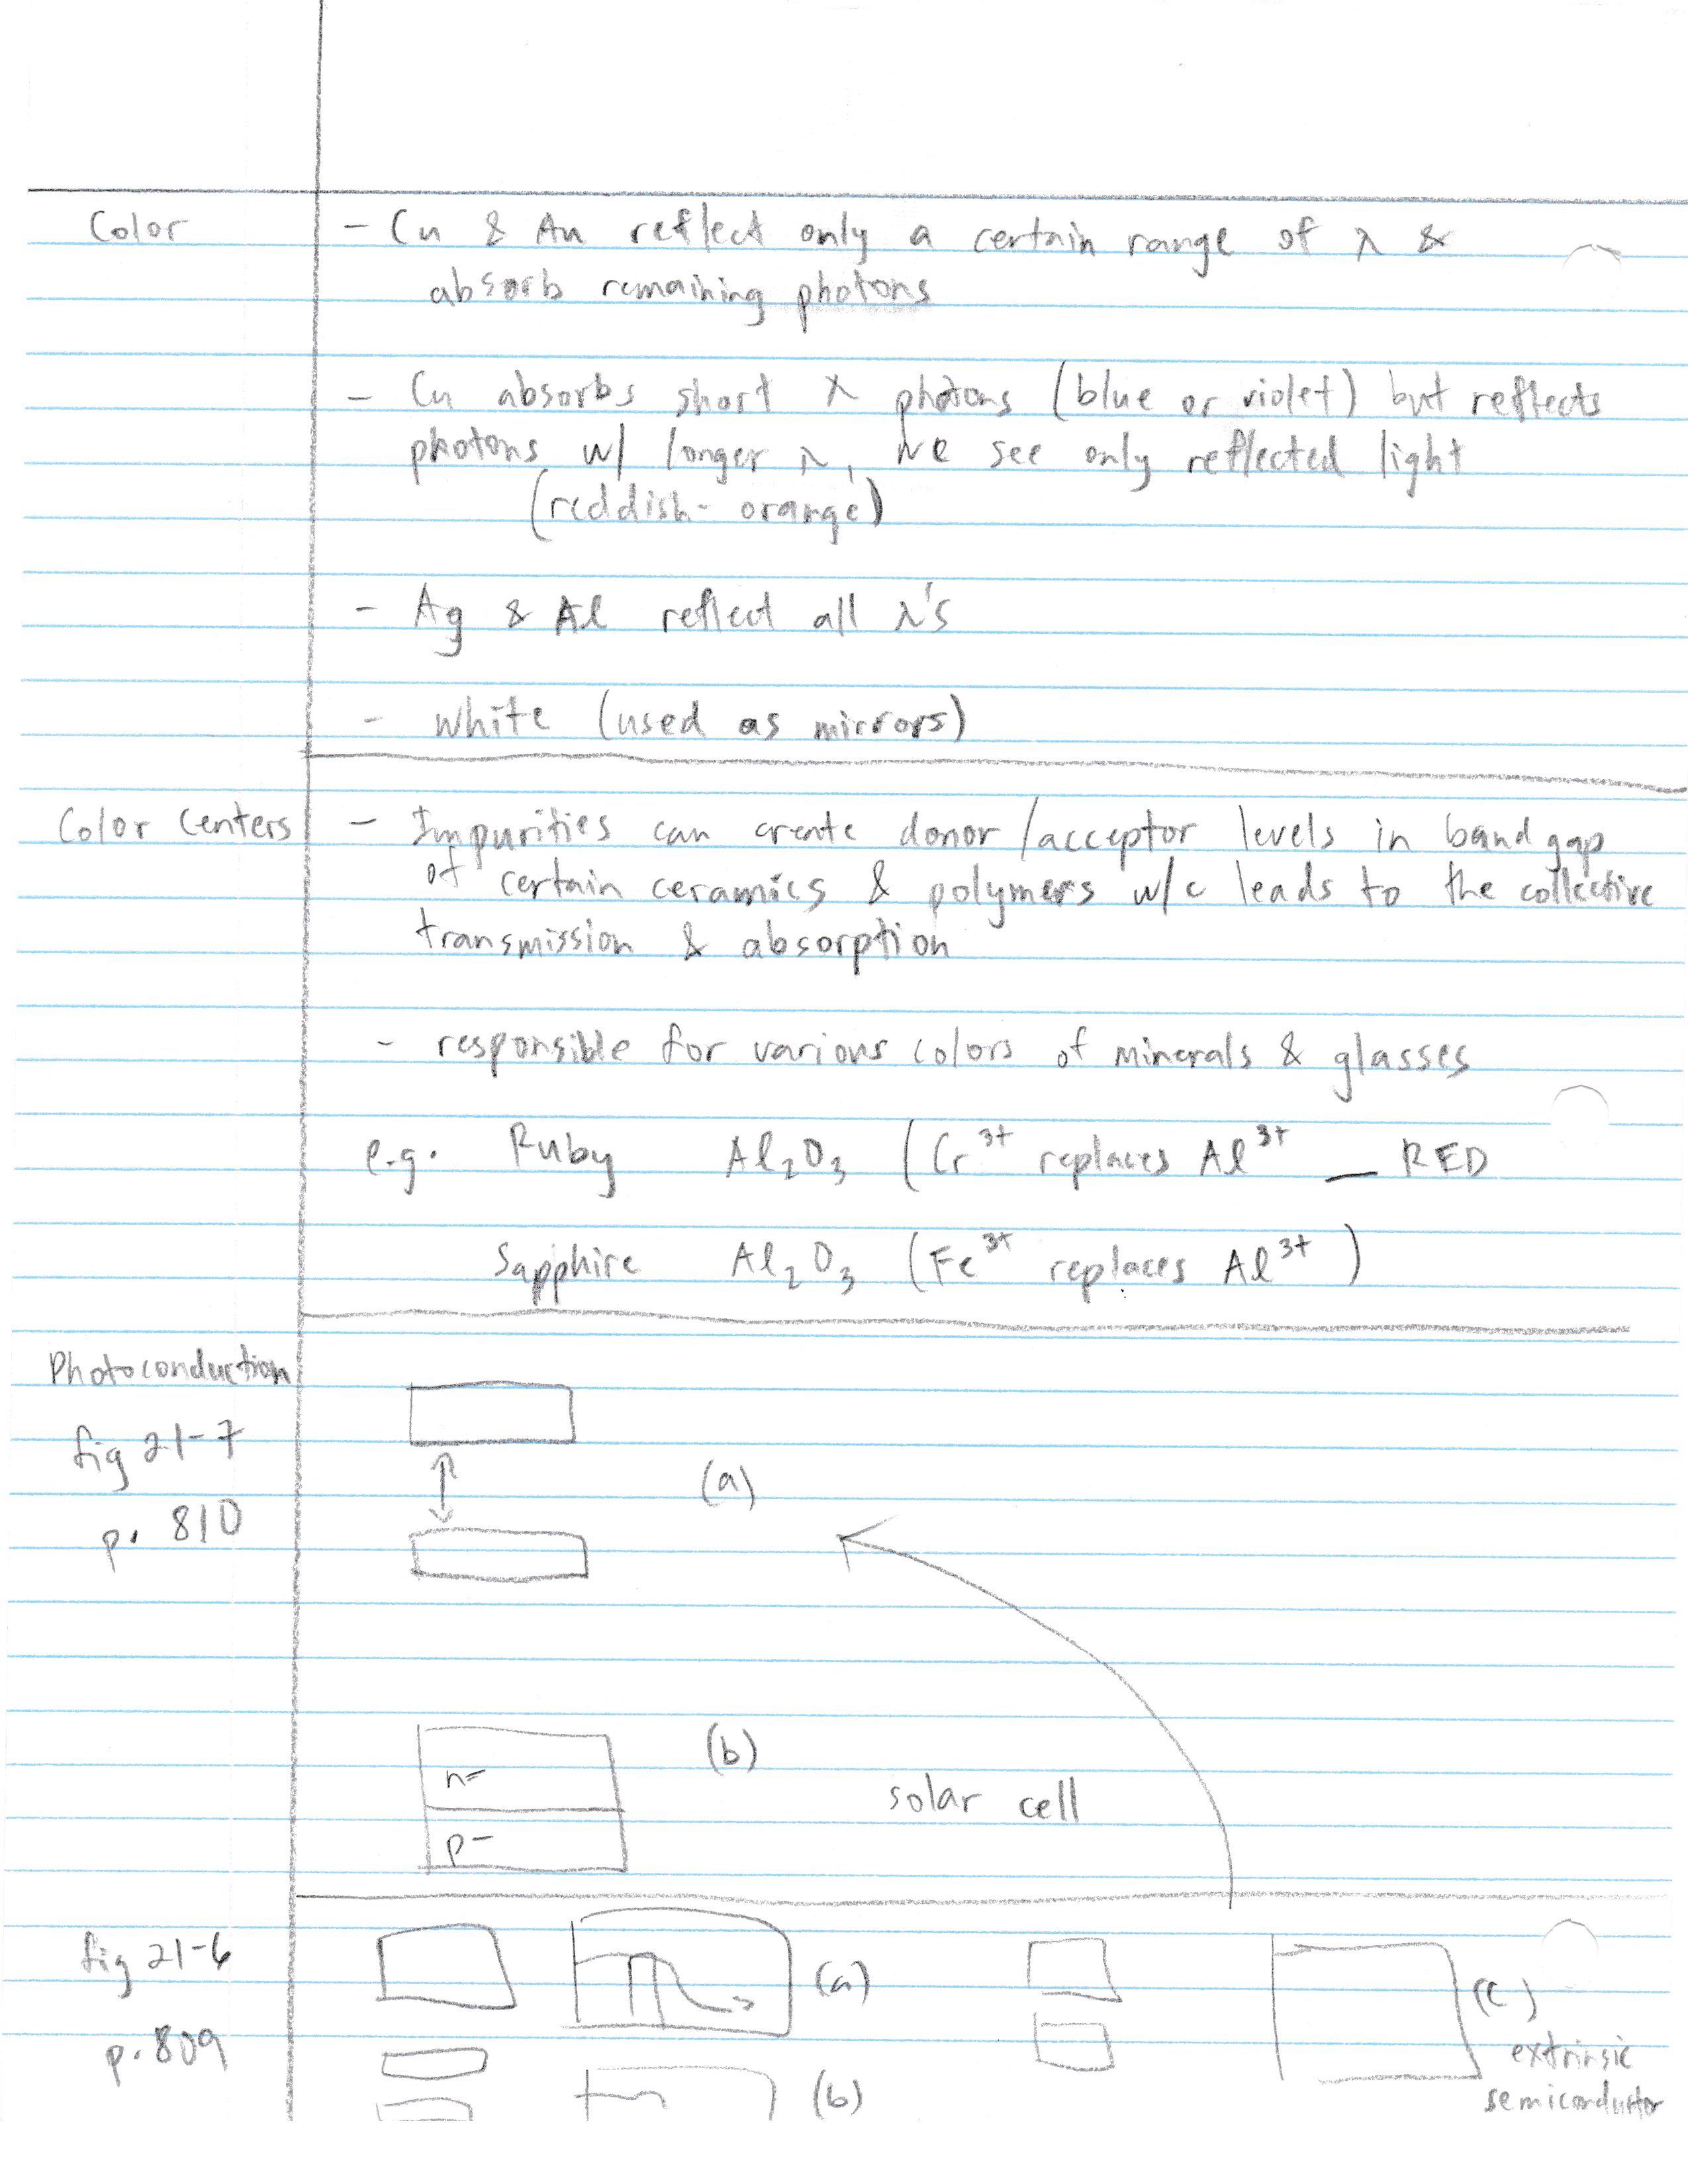 Color
- Cu & Au reflect only a certain range of λ &
absorb remaining photons
- Cu absorbs short λ photons (blue or violet) but reflects
photons w/ longer λ, we see only reflected light
(reddish-orange)
- Ag & Al reflect all λ's
- white (used as mirrors)
Color Centers
- Impurities can create donor/acceptor levels in band gap
of certain ceramics & polymers w/c leads to the collective
transmission & absorption
- responsible for various colors of minerals & glasses
e.g. Ruby Al₂O₃ (Cr³⁺ replaces Al³⁺ _ RED
Sapphire Al₂O₃ (Fe³⁺ replaces Al³⁺)
Photoconduction
fig 21-7
p. 810
(a)
(b)
n-
p-
solar cell
fig 21-6
p. 809
(a)
(b)
(c)
extrinsic
semiconductor